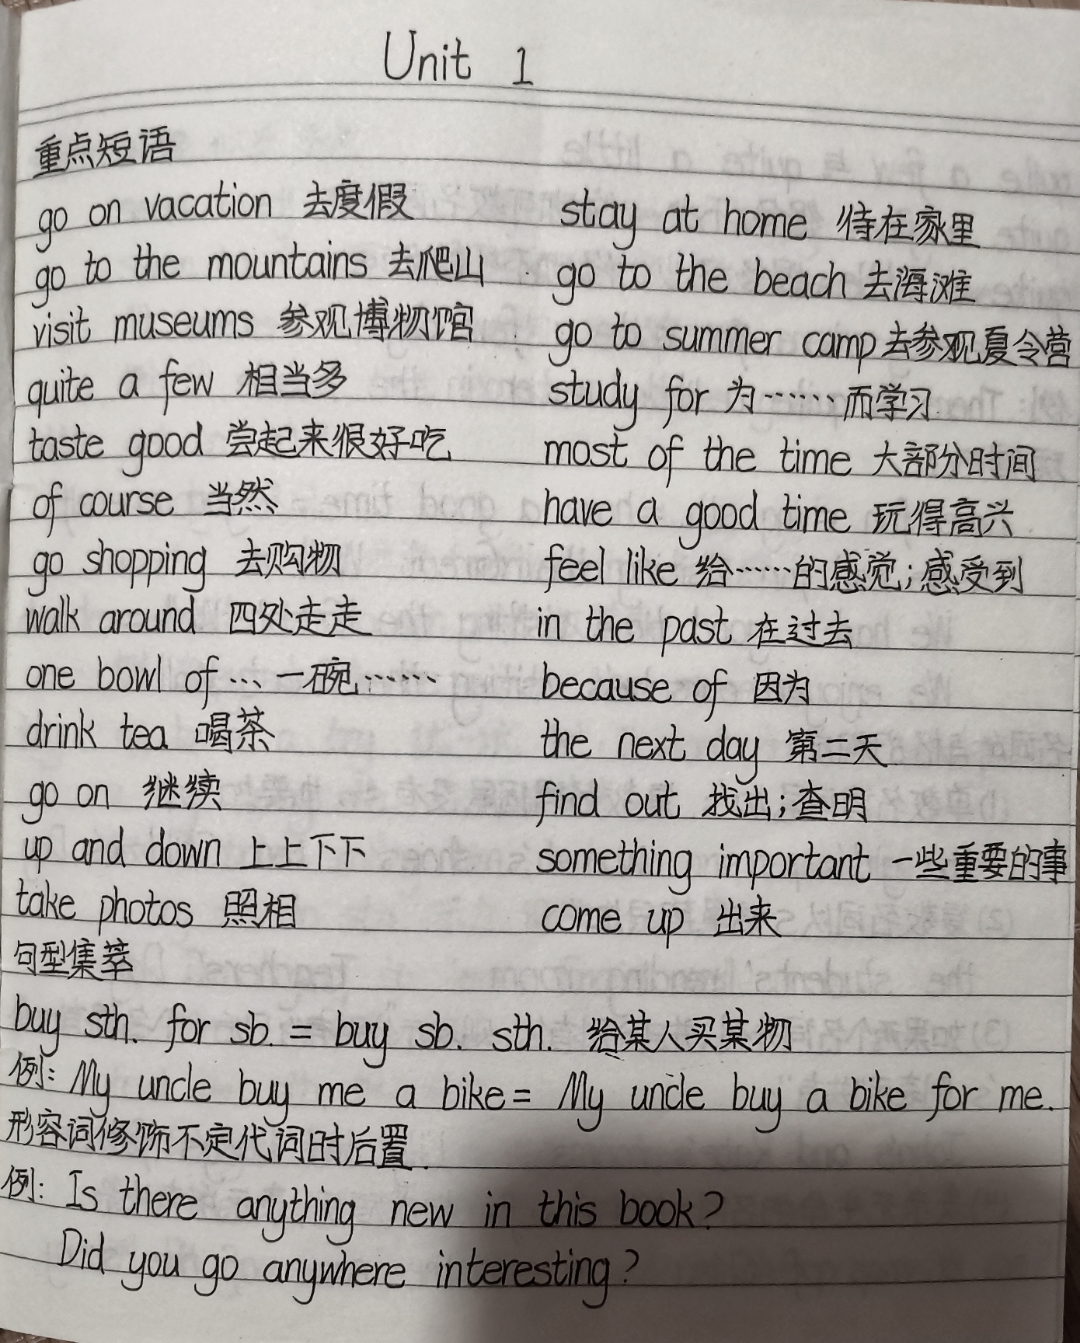 Unit 1
重点短语
go on vacation 去度假 stay at home 待在家里
go to the mountains 去爬山 go to the beach 去海滩
visit museums 参观博物馆 go to summer camp 去参观夏令营
quite a few 相当多 study for 为……而学习
taste good 尝起来很好吃 most of the time 大部分时间
of course 当然 have a good time 玩得高兴
go shopping 去购物 feel like 给……的感觉;感受到
walk around 四处走走 in the past 在过去
one bowl of … 一碗…… because of 因为
drink tea 喝茶 the next day 第二天
go on 继续 find out 找出;查明
up and down 上上下下 something important 一些重要的事
take photos 照相 come up 出来
句型集萃
buy sth. for sb. = buy sb. sth. 给某人买某物
例: My uncle buy me a bike = My uncle buy a bike for me.
形容词修饰不定代词时后置.
例: Is there anything new in this book?
Did you go anywhere interesting?